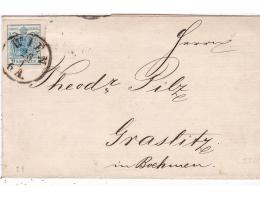 WIEN
Herrn
Theodr Pilz
Graslitz
in Boehmen.